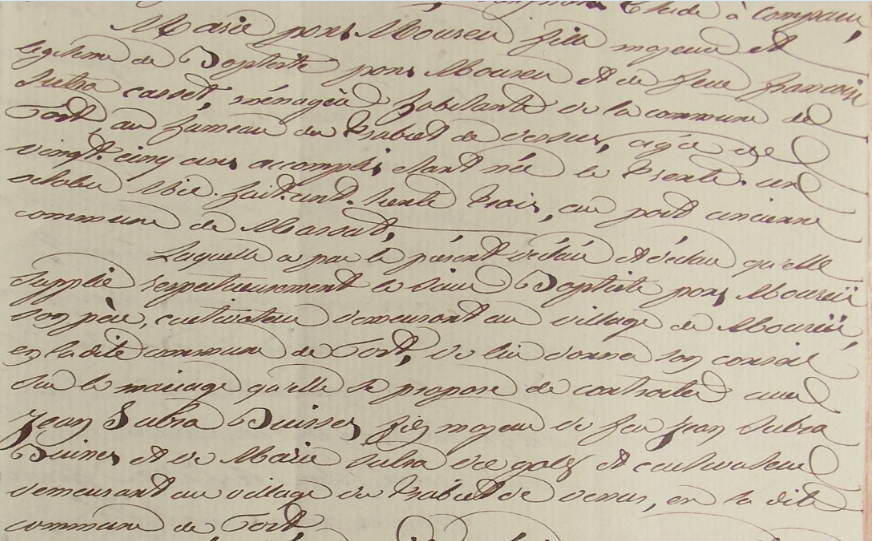 Etude à Comparu,
Marie pons Moureu fille majeure et
légitime de Baptiste pons Moureu et de feue françoise
Subra casset, ménagère habitante de la commune de
Port, au hameau du Trabiet de dessus, agée de
vingt-cinq ans accomplis étant née le trente-un
octobre mil-huit-cent-trente trois, au port ancienne
commune de Massat,
Laquelle a par le présent déclaré et déclare qu'elle
supplie respectueusement le sieur Baptiste pons Moureü
son père, cultivateur demeurant au village de Moureü,
en la dite commune de Port, de lui donner son conseil
sur le mariage qu'elle se propose de contracter avec
Jean Subra Buisses fils majeur de feu Jean Subra
et de Marie Subra et cultivateur
demeurant au village du Trabiet de dessus, en la dite
commune de Port